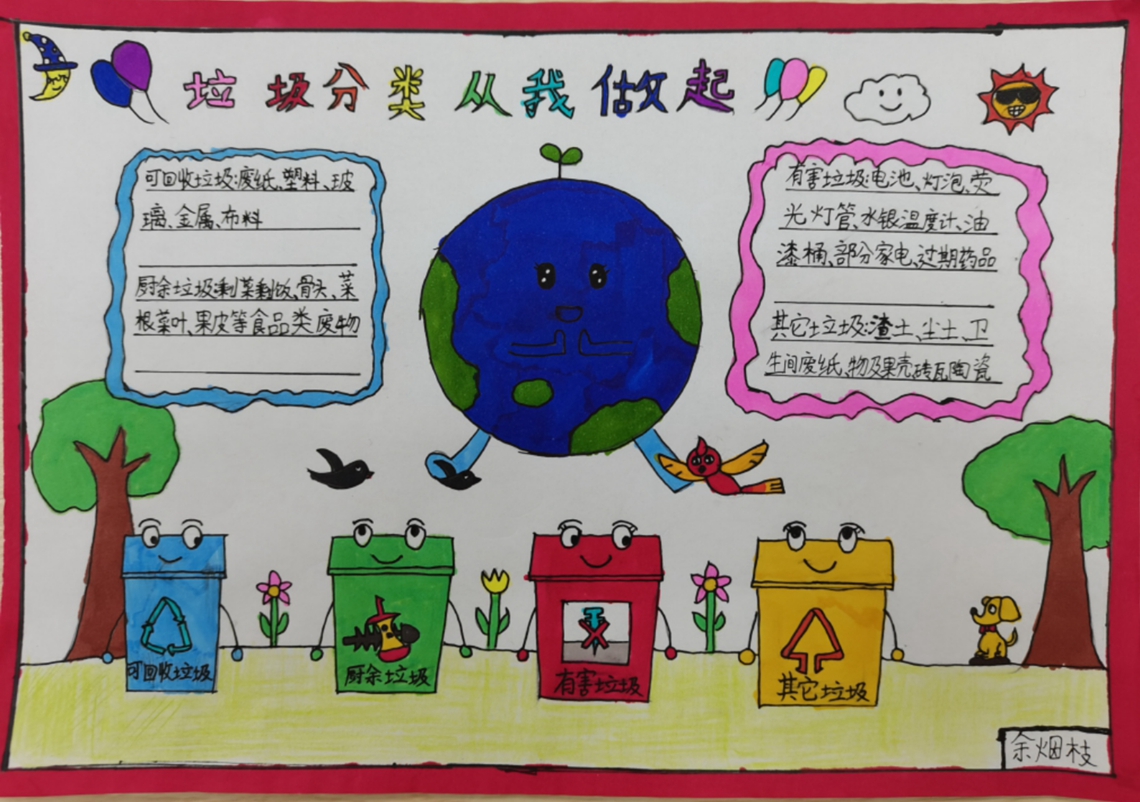 垃圾分类从我做起
可回收垃圾:废纸、塑料、玻
璃、金属、布料
厨余垃圾:剩菜剩饭、骨头、菜
根菜叶、果皮等食品类废物
有害垃圾:电池、灯泡、荧
光灯管、水银温度计、油
漆桶、部分家电、过期药品
其它垃圾:渣土、尘土、卫
生间废纸、物及果壳砖瓦陶瓷
可回收垃圾
厨余垃圾
有害垃圾
其它垃圾
余烟枝